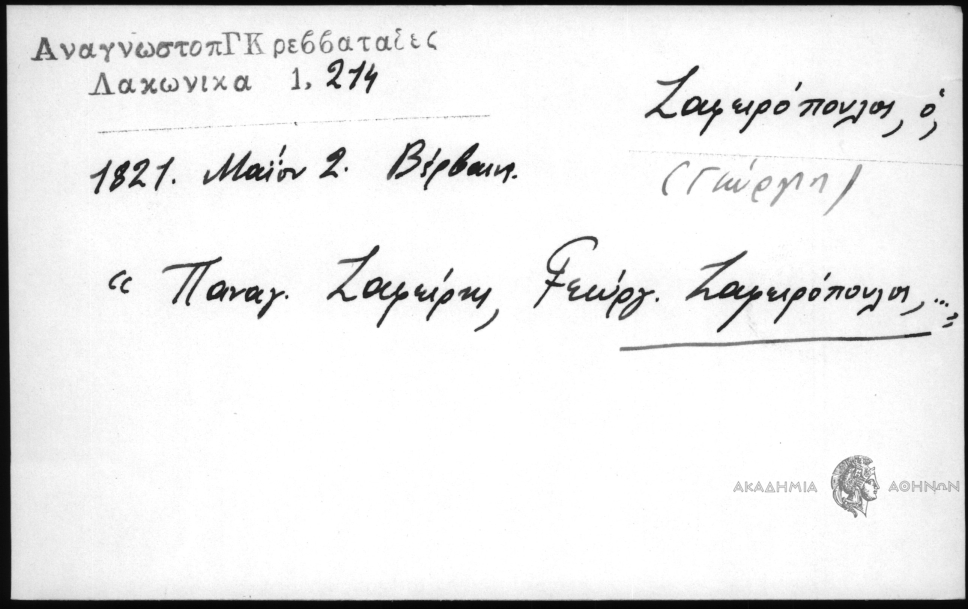 ΑναγνωστοπΓΚρεββαταδες
Λακωνικα 1, 214
Ζαφειρόπουλος, ὁ,
(Γεώργιος)
1821. Μαΐου 2. Βέρβαινα.
“ Παναγ. Ζαφείρης, Γεώργ. Ζαφειρόπουλος, ... ”
ΑΚΑΔΗΜΙΑ ΑΘΗΝΩΝ